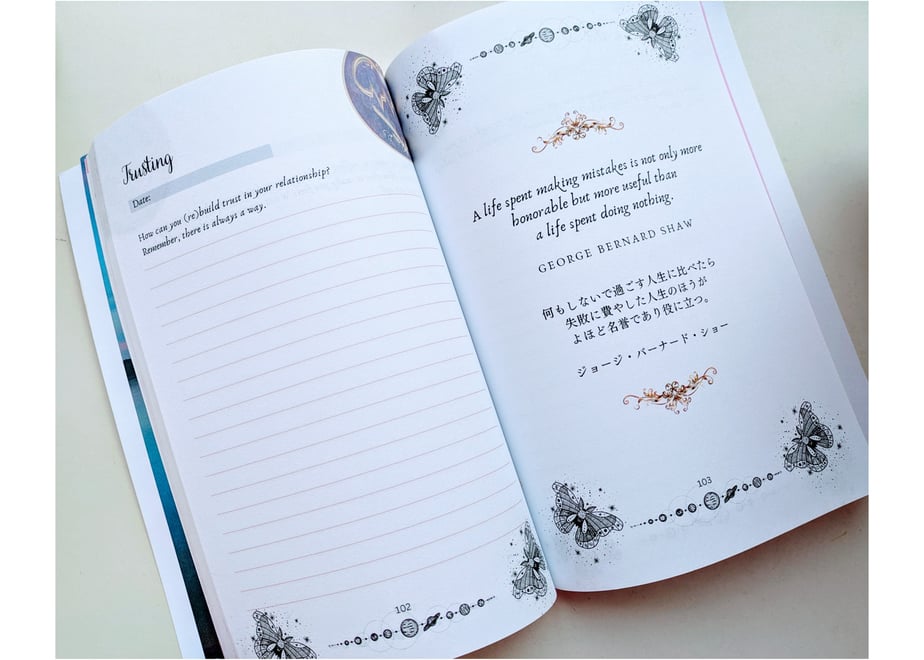 Trusting
Date:
How can you (re)build trust in your relationship?
Remember, there is always a way.
102
A life spent making mistakes is not only more
honorable but more useful than
a life spent doing nothing.
GEORGE BERNARD SHAW
何もしないで過ごす人生に比べたら
失敗に費やした人生のほうが
よほど名誉であり役に立つ。
ジョージ・バーナード・ショー
103